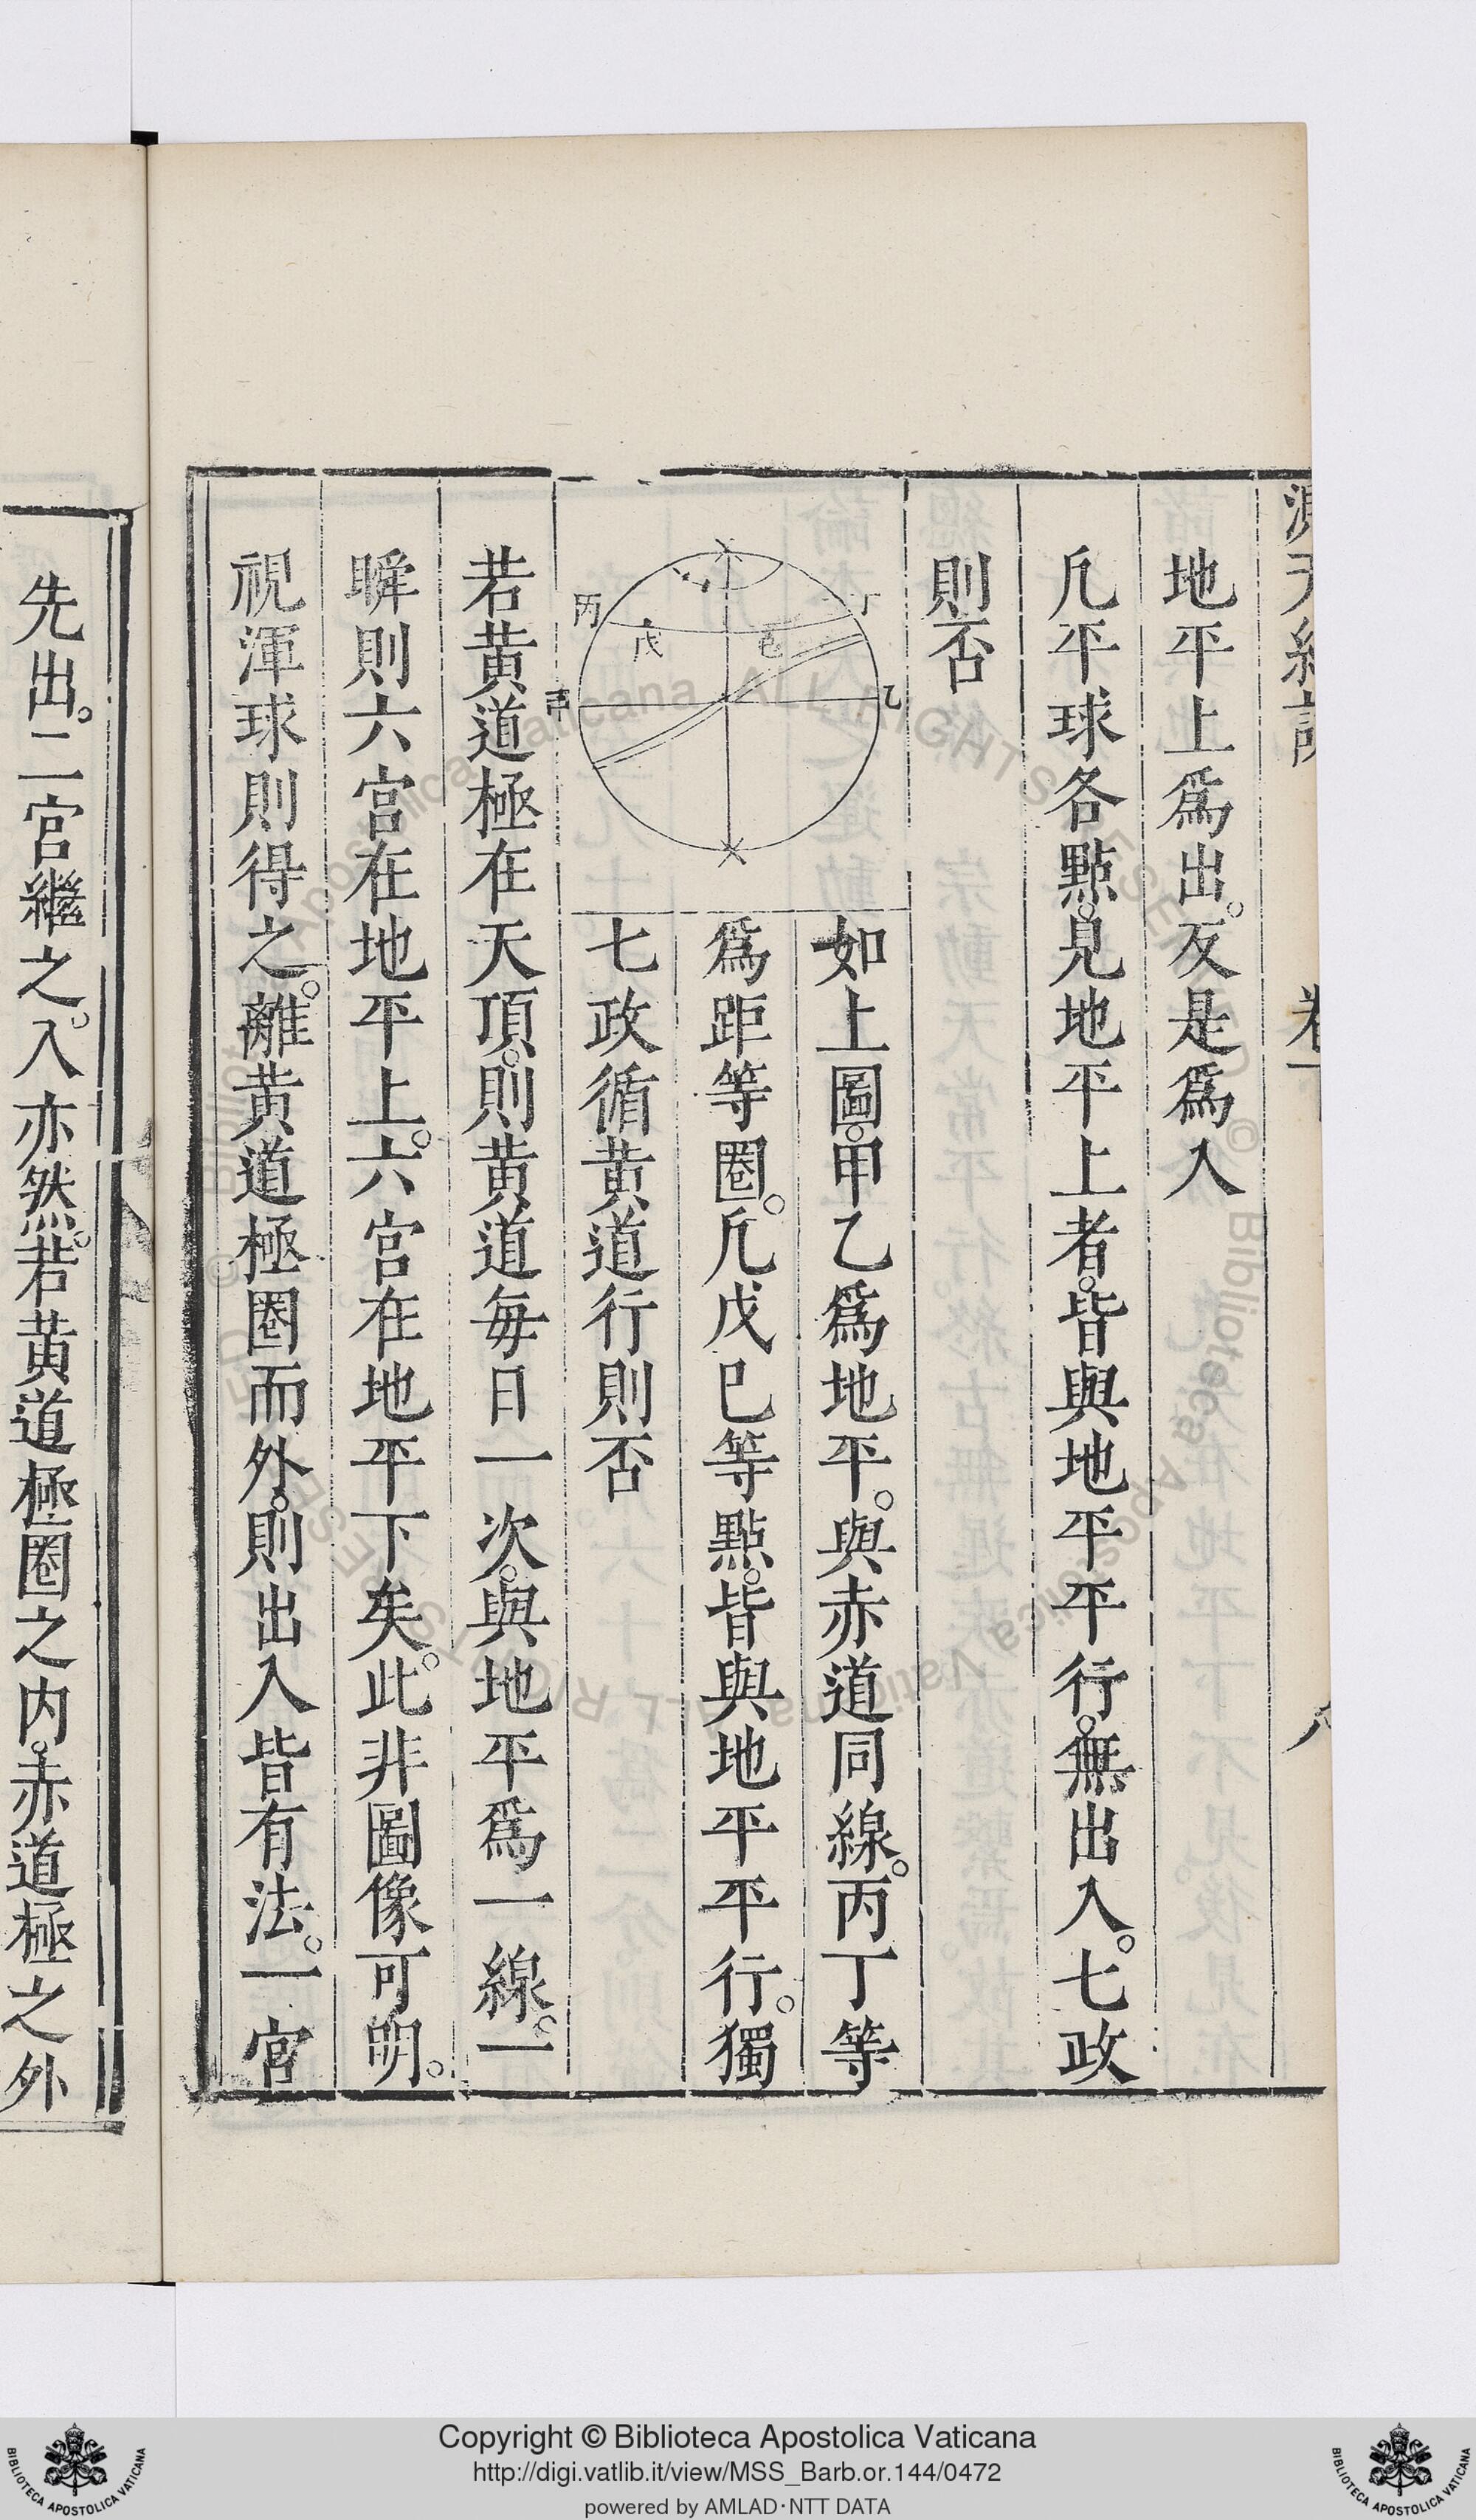 地平上爲出。反是爲入
凡平球各㸃。見地平上者。皆與地平平行。無出入。七政
則否
丁
乙
丙
戊
己
甲
如上圖。甲乙爲地平。與赤道同線。丙丁等
爲距等圈。凡戊巳等㸃。皆與地平平行。獨
七政循黄道行則否
若黄道極在天頂。則黄道每日一次。與地平爲一線。一
瞬則六宫在地平上。六宫在地平下矣。此非圖像可明。
視渾球則得之。離黄道極圈而外。則出入皆有法。一宫
先出。二宫繼之。入亦然。若黄道極圈之内。赤道極之外
Copyright © Biblioteca Apostolica Vaticana
http://digi.vatlib.it/view/MSS_Barb.or.144/0472
powered by AMLAD·NTT DATA
BIBLIOTECA APOSTOLICA VATICANA
BIBLIOTECA APOSTOLICA VATICANA